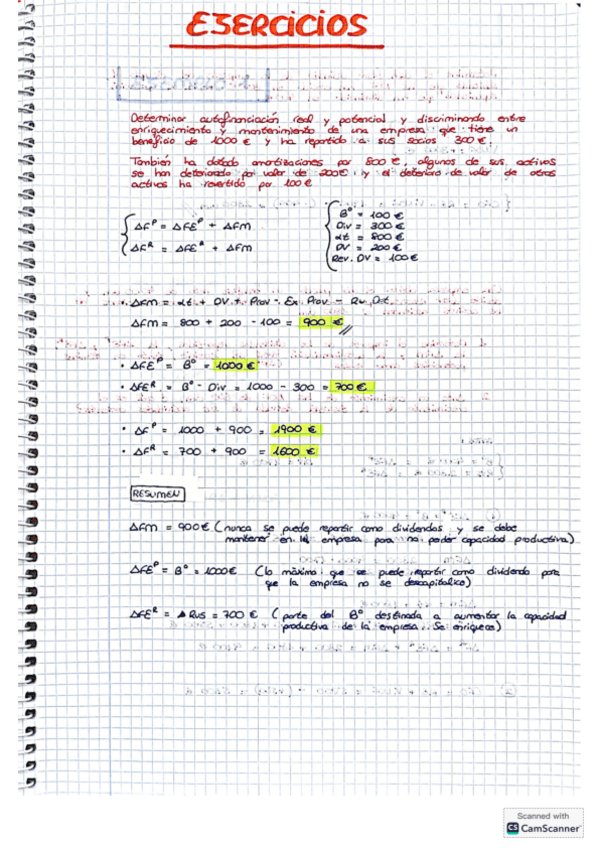 EJERCICIOS
Determinar autofinanciación real y potencial y discriminando entre
enriquecimiento y mantenimiento de una empresa que tiene un
beneficio de 1000 € y ha repartido a sus socios 300 €.
También ha dotado amortizaciones por 800 €, algunos de sus activos
se han deteriorado por valor de 200€ y el deterioro de valor de otros
activos ha revertido por 100 €
ΔFᴾ = ΔFEᴾ + ΔFM
ΔFᴿ = ΔFEᴿ + ΔFM
Bº = 100 €
Div = 300 €
At = 800 €
DV = 200 €
Rev. DV = 100 €
· ΔFM = At + DV + Prov - Ex. Prov - Rv. Det.
ΔFM = 800 + 200 - 100 = 900 €
· ΔFEᴾ = Bº = 1000 €
· ΔFEᴿ = Bº - Div = 1000 - 300 = 700 €
· ΔFᴾ = 1000 + 900 = 1900 €
· ΔFᴿ = 700 + 900 = 1600 €
RESUMEN
ΔFM = 900 € (nunca se puede repartir como dividendos y se debe
mantener en la empresa para no perder capacidad productiva)
ΔFEᴾ = Bº = 1000€ (lo máximo que se puede repartir como dividendo para
que la empresa no se descapitalice)
ΔFEᴿ = ΔRvs = 700 € (parte del Bº destinada a aumentar la capacidad
productiva de la empresa. Se enriquece)
Scanned with
CS CamScanner